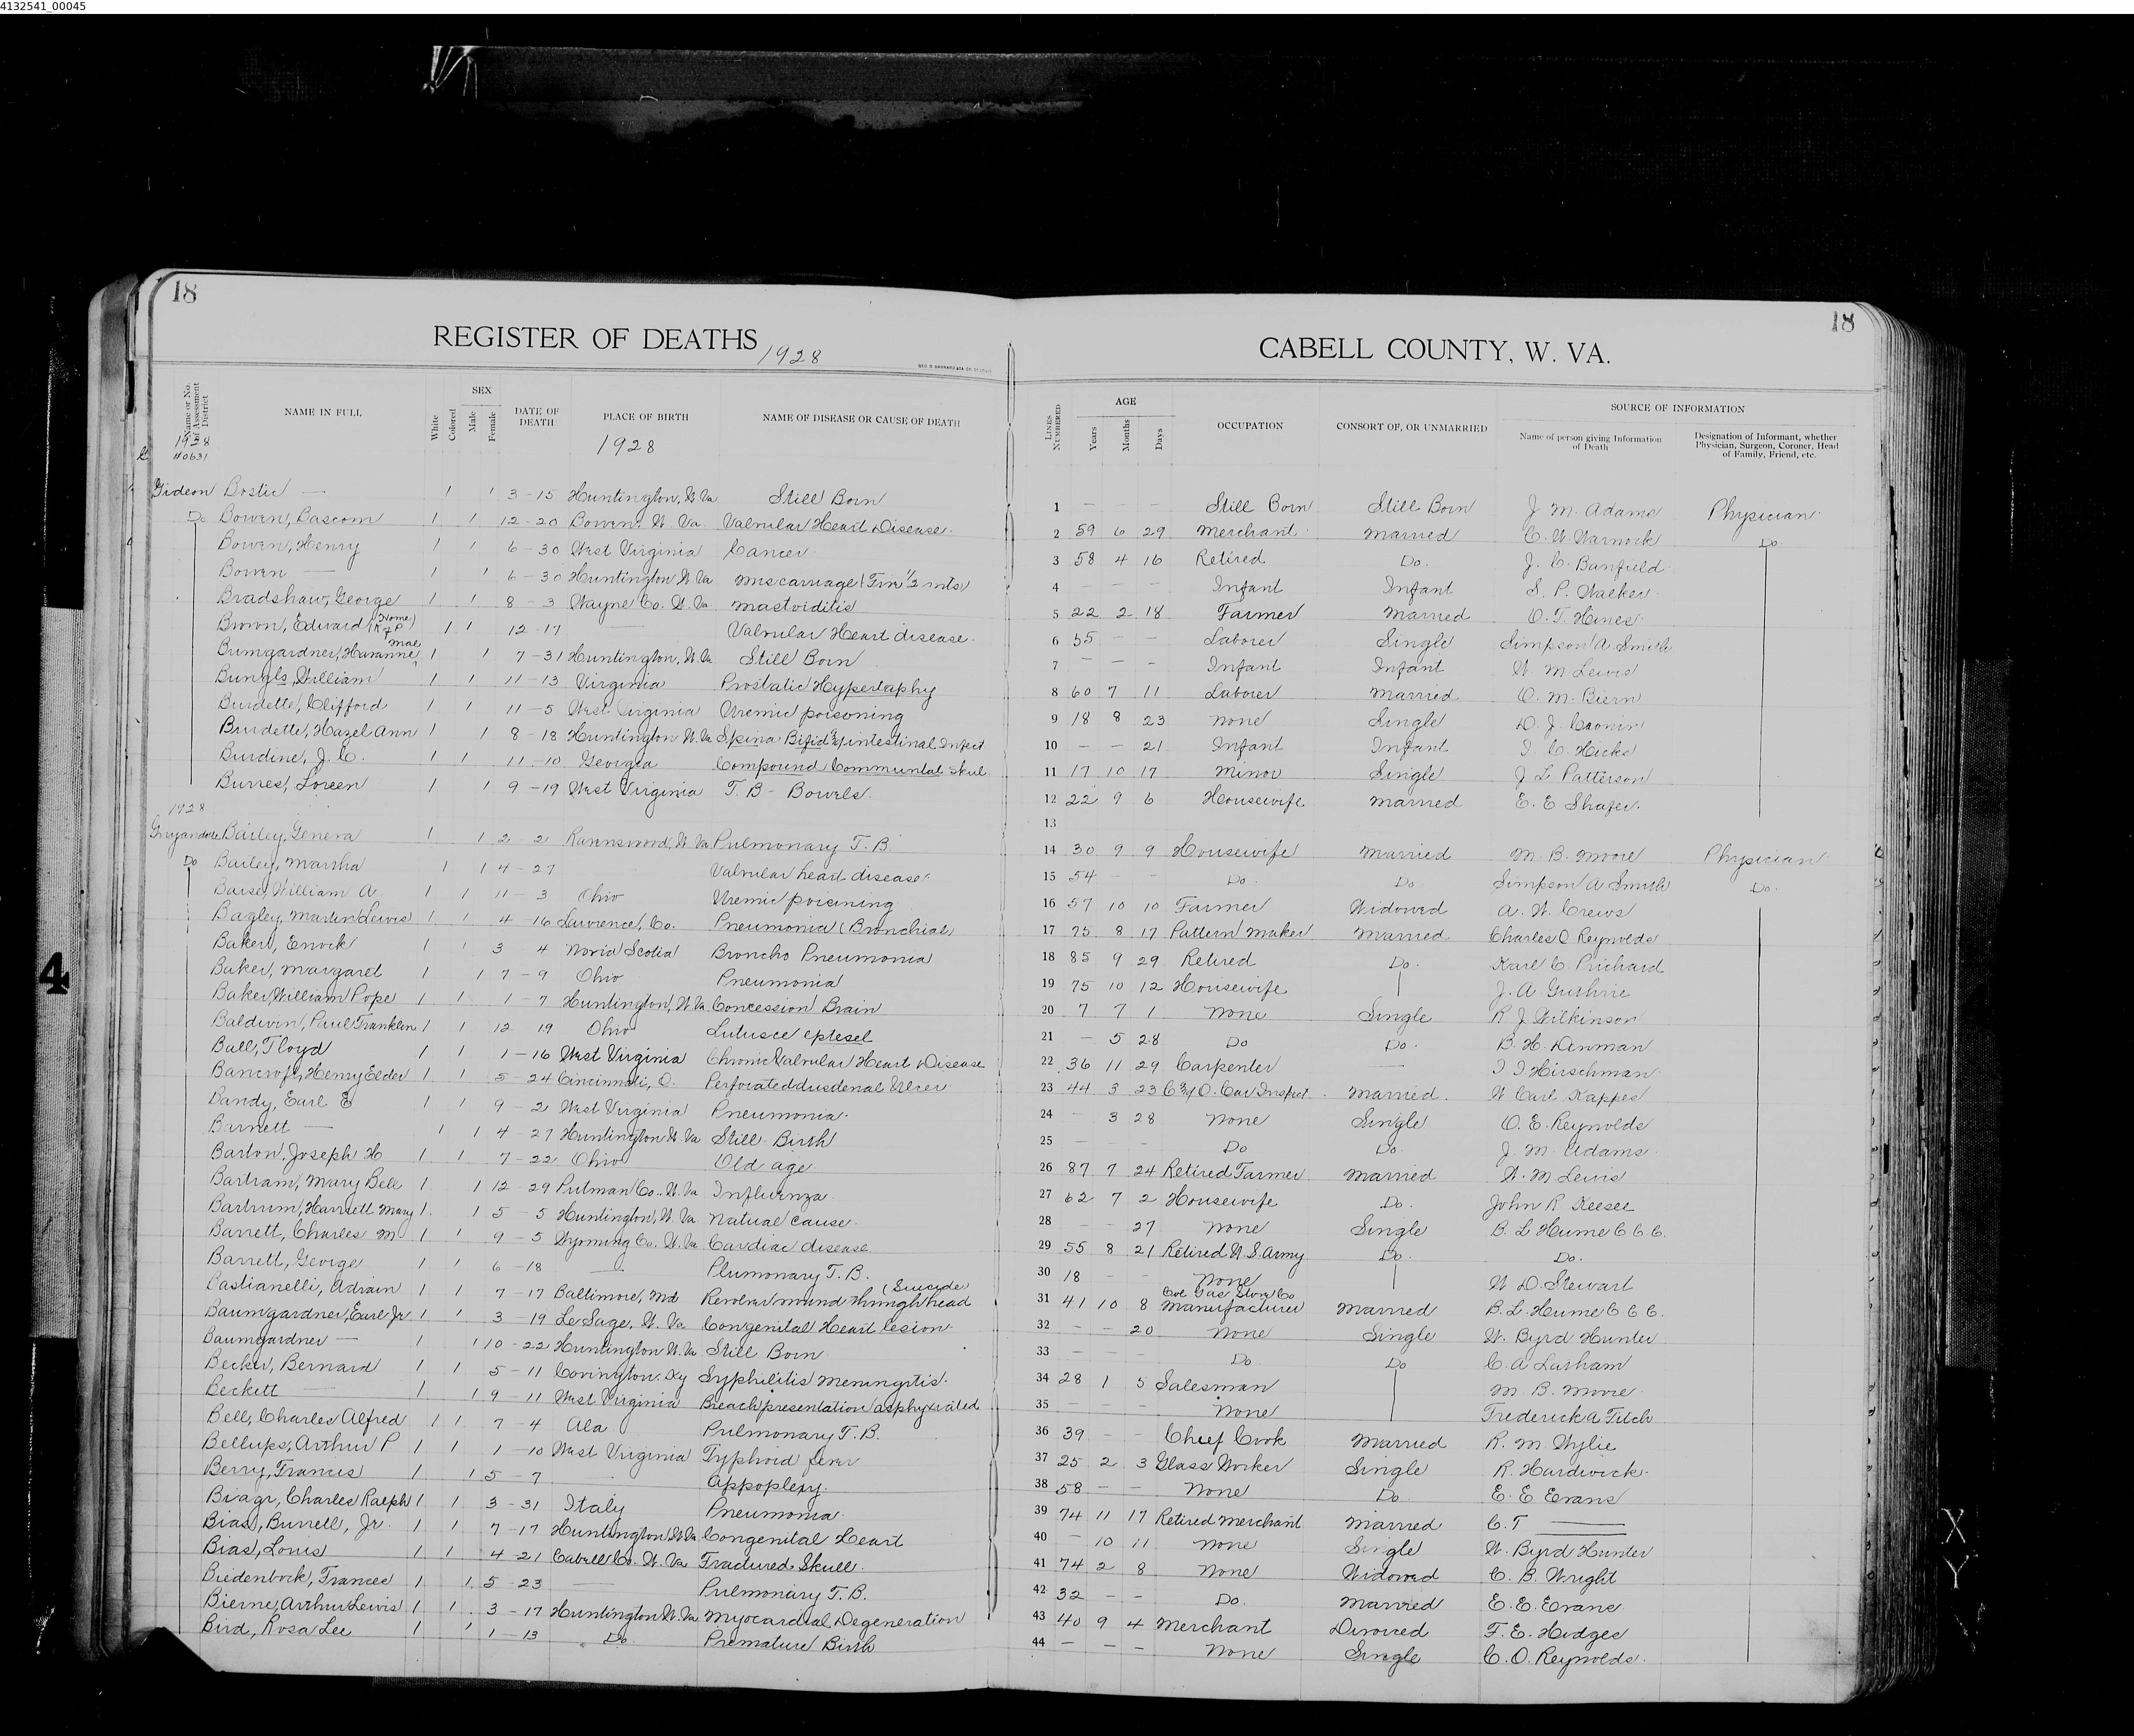 4132541_00045
18
REGISTER OF DEATHS 1928
18
CABELL COUNTY, W. VA.
Name or No. of Assessment District
NAME IN FULL
White
Colored
SEX
Male
Female
DATE OF DEATH
PLACE OF BIRTH
NAME OF DISEASE OR CAUSE OF DEATH
LINES NUMBERED
AGE
Years
Months
Days
OCCUPATION
CONSORT OF, OR UNMARRIED
SOURCE OF INFORMATION
Name of person giving Information of Death
Designation of Informant, whether Physician, Surgeon, Coroner, Head of Family, Friend, etc.
1928
1928
Gideon Bostic — 1 1 3-15 Huntington, W. Va Still Born 1 — — — Still Born Still Born J. M. Adams Physician
Do Bowen, Bascom 1 1 12-20 Bowen, W. Va. Valvular Heart Disease. 2 59 6 29 Merchant Married C. W. Warnock Do.
Bowen, Henry 1 1 6-30 West Virginia Cancer 3 58 4 16 Retired Do. J. C. Banfield
Bowen — 1 1 6-30 Huntington W. Va Miscarriage (Five 1/2 mts) 4 — — — Infant Infant S. P. Walker
Bradshaw, George 1 1 8-3 Wayne Co. W. Va. Mastoiditis 5 22 2 18 Farmer Married O. T. Hines
Brown, Edward (K of P Home) 1 1 12-17 — Valvular Heart disease. 6 55 — — Laborer Single Simpson A Smith
Bumgardner, Havanne Mae 1 1 7-31 Huntington, W. Va Still Born 7 — — — Infant Infant W. M Lewis
Bungls, William 1 1 11-13 Virginia Prostatic Hypertaphy 8 60 7 11 Laborer Married O. M. Biern
Burdette, Clifford 1 1 11-5 West Virginia Uremic poisoning 9 18 8 23 None Single D. J. Cronin
Brudette, Hazel Ann 1 1 8-18 Huntington W. Va Spina Bifid & intestinal Infect 10 — — 21 Infant Infant I. C. Hicks
Burdine, J. C. 1 1 11-10 Georgia Compound Communtal Skul 11 17 10 17 Minor Single J L Patterson
Burres, Loreen 1 1 9-19 West Virginia T. B - Bowels. 12 22 9 6 Housewife Married E. E Shafer.
1928 13
Guyandotte Bailey, Geneva 1 1 2-2 Ravenswood, W. Va Pulmonary T. B. 14 30 9 9 Housewife Married M. B. Moore Physician
Do Bailey, Martha 1 1 4-27 Valvular heart disease 15 54 — — Do. Do Simpson A Smith Do.
Baise, William A. 1 1 11-3 Ohio Uremic poisining 16 57 10 10 Farmer Widowed A. W. Crews
Bagley, Martin Lewis 1 1 4-16 Lawrence, Co. Pneumonia (Bronchial) 17 75 8 17 Pattern Maker Married Charles O Reynolds
Baker, Enock 1 1 3 4 Novia Scotia Broncho Pneumonia 18 85 9 29 Retired Do. Karl C. Prichard
Baker, Margaret 1 1 7-9 Ohio Pneumonia 19 75 10 12 Housewife J. A Guthrie
Baker, William Pope 1 1 1-7 Huntington, W. Va. Concession Brain 20 7 7 1 None Single R J Wilkinson
Baldwin, Paul Franklin 1 1 12 19 Ohio 21 — 5 28 Do Do. B. H. Denman
Ball, Floyd 1 1 1-16 West Virginia Chronic Valvular Heart Disease 22 36 11 29 Carpenter — I. I Hirschman
Bancroft, Henry Elder 1 1 5-24 Cincinnati, O. Perforated duodenal Ulcer 23 44 3 23 C & O. Car Inspect. Married. W Carl Kappes
Bandy, Earl E 1 1 9-2 West Virginia Pneumonia. 24 — 3 28 None Single O. E. Reynolds
Barnett — 1 1 4-27 Huntington W. Va Still Birth 25 — — — Do Do. J. M. Adams
Barton, Joseph H 1 1 7-22 Ohio Old age 26 87 7 24 Retired Farmer Married W. M. Lewis
Bartram, Mary Bell 1 1 12-29 Putman Co., W. Va Influenza. 27 62 7 2 Housewife Do. John R Keesee
Bartrum, Harriett Mary 1 1 5-5 Huntington, W. Va Natual cause. 28 — — 27 None Single B. L Hume C C C.
Barrett, Charles M 1 1 9-5 Wyming Co. W. Va Cardiac disease. 29 55 8 21 Retired U. S. Army Do. Do.
Barrett, George 1 1 6-18 — Plumonary T. B. 30 18 — — None W D. Stewart
Bastianelli, Adrian 1 1 7-17 Baltimore, Md Revolver wound through head (Suicide 31 41 10 8 Col Gas Stove Co Manufacturer Married B. L. Hume C C C.
Baumgardner, Earl Jr. 1 1 3-19 Le Sage, W. Va. Congenital Heart lesion 32 — — 20 None Single W. Byrd Hunter
Baumgardner — 1 1 10-22 Huntington W. Va Still Born 33 — — — Do Do C. A Latham
Becker, Bernard 1 1 5-11 Covington. Ky Syphilitis meningitis. 34 28 1 5 Salesman M. B. Moore
Beckett — 1 1 9-11 West Virginia Breach presentation asphyxiated 35 — — — None Frederick A Fitch
Bell, Charles Alfred 1 1 7-4 Ala Pulmonary T. B. 36 39 — — Chief Cook Married R. M. Wylie
Bellups, Arthur P 1 1 1-10 West Virginia Typhoid fever 37 25 2 3 Glass Worker Single R. Hardwick.
Berry, Francis 1 1 5-7 Appoplexy. 38 58 — — None Do E. E Evans
Biagr, Charles Ralph 1 1 3-31 Italy Pneumonia. 39 74 11 17 Retired Merchant Married C. T —
Bias, Burrell, Jr. 1 1 7-17 Huntington W. Va Congenital Heart 40 — 10 11 None Single W. Byrd Hunter
Bias, Louis 1 1 4-21 Cabell Co. W. Va Fractured Skull. 41 74 2 8 None Widowed C. B. Wright
Biedenbock, Frances 1 1 5-23 — Pulmonary T. B. 42 32 — — Do. Married E. E. Evans
Bierne, Arthur Lewis 1 1 3-17 Huntington W. Va Myocardial Degeneration 43 40 9 4 Merchant Divorced F. E. Hodges
Bird, Rosa Lee 1 1 1-13 Do. Premature Birth 44 — — — None Single C. O. Reynolds.
4
X
Y